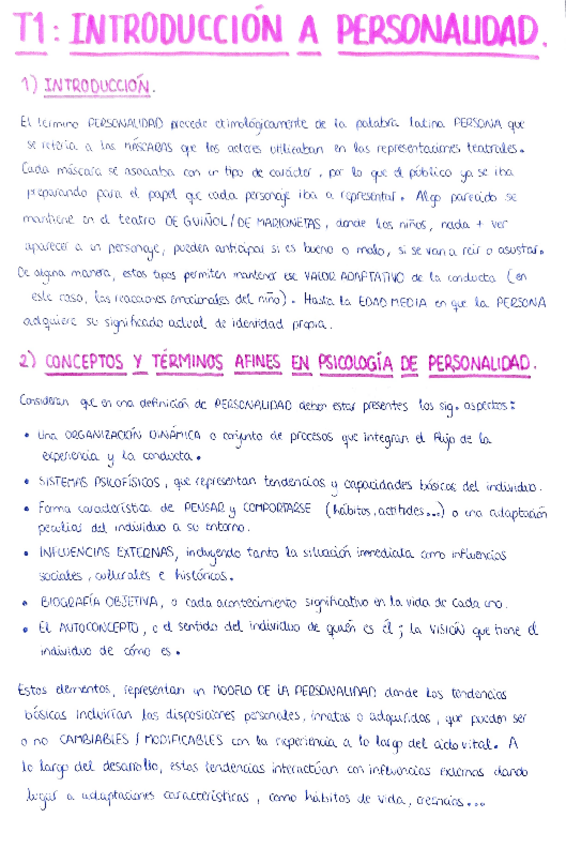 T1: INTRODUCCIÓN A PERSONALIDAD.
1) INTRODUCCIÓN.
El término PERSONALIDAD procede etimológicamente de la palabra latina PERSONA que
se refería a las MÁSCARAS que los actores utilizaban en las representaciones teatrales.
Cada máscara se asociaba con un tipo de carácter, por lo que el público ya se iba
preparando para el papel que cada personaje iba a representar. Algo parecido se
mantiene en el teatro DE GUIÑOL / DE MARIONETAS, donde los niños, nada + ver
aparecer a un personaje, pueden anticipar si es bueno o malo, si se van a reír o asustar.
De alguna manera, estos tipos permiten mantener ese VALOR ADAPTATIVO de la conducta (en
este caso, las reacciones emocionales del niño). Hasta la EDAD MEDIA en que la PERSONA
adquiere su significado actual de identidad propia.
2) CONCEPTOS Y TÉRMINOS AFINES EN PSICOLOGÍA DE PERSONALIDAD.
Consideran que en una definición de PERSONALIDAD deben estar presentes los sig. aspectos:
• Una ORGANIZACIÓN DINÁMICA o conjunto de procesos que integran el flujo de la
experiencia y la conducta.
• SISTEMAS PSICOFÍSICOS, que representan tendencias y capacidades básicas del individuo.
• Forma característica de PENSAR y COMPORTARSE (hábitos, actitudes...) o una adaptación
peculiar del individuo a su entorno.
• INFLUENCIAS EXTERNAS, incluyendo tanto la situación inmediata como influencias
sociales, culturales e históricas.
• BIOGRAFÍA OBJETIVA, o cada acontecimiento significativo en la vida de cada uno.
• EL AUTOCONCEPTO, o el sentido del individuo de quién es él; la VISIÓN que tiene el
individuo de cómo es.
Estos elementos, representan un MODELO DE LA PERSONALIDAD donde las tendencias
básicas incluirían las disposiciones personales, innatas o adquiridas, que pueden ser
o no CAMBIABLES / MODIFICABLES con la experiencia a lo largo del ciclo vital. A
lo largo del desarrollo, estas tendencias interactúan con influencias externas dando
lugar a adaptaciones características, como hábitos de vida, creencias...